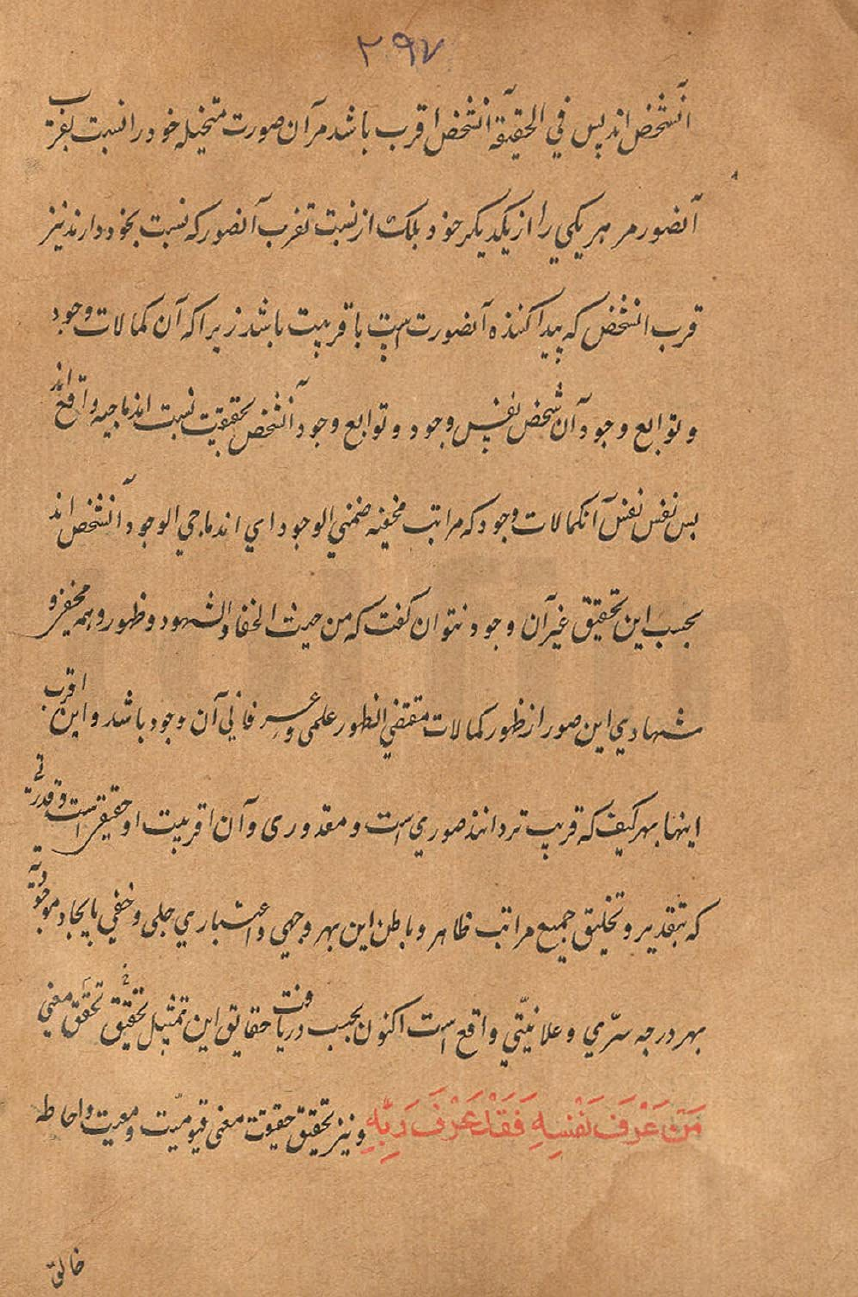 ۲۹۷
آنشخص اند پس في الحقیقه آنشخص اقرب باشد مر آن صورت متخیله خود را نسبت بقرب
آنصور مر هر یکي را از یکدیگر خود بلکه از نسبت تقرب آنصور که نسبت بخود دارند نیز
قرب انشخص که پیدا کننده آنصورت است با قربیت باشد زیرا که آن کمالات وجود
و توابع وجود آن شخص بنفس وجود و توابع وجود آنشخص بحقیقت نسبت اندماجیه واقع اند
پس نفس نفس آنکمالات وجود که مراتب مخفیه ضمني الوجود اي اندماجي الوجود آنشخص اند
بحسب این تحقیق غیر آن وجود نتوان گفت که من حیث الخفاء والشهود و ظهور وهم مخفي و
شهادي این صور از ظهور کمالات مقتضي الظهور علمی و عرفاني آن وجود باشد و این اقرب
اینها بهر کیف که قریب تر دانند صوري است و مقدوری و آن اقربیت او حقیقي است و قدرتي
که بتقدیر و تخلیق جمیع مراتب ظاهر و باطن این بهر وجهي و اعتباري جلی و خفي بایجاد موجودیه
بهر درجه سرّي و علانیتي واقع است اکنون بحسب دریافت حقایق این تمثیل تحقیق تحقق معني
مَنْ عَرَفَ نَفْسِهِ فَقَدْ عَرَفَ رَبِّهِ و نیز تحقیق حقیقت معني قیومیت و معیت و احاطه
خالق